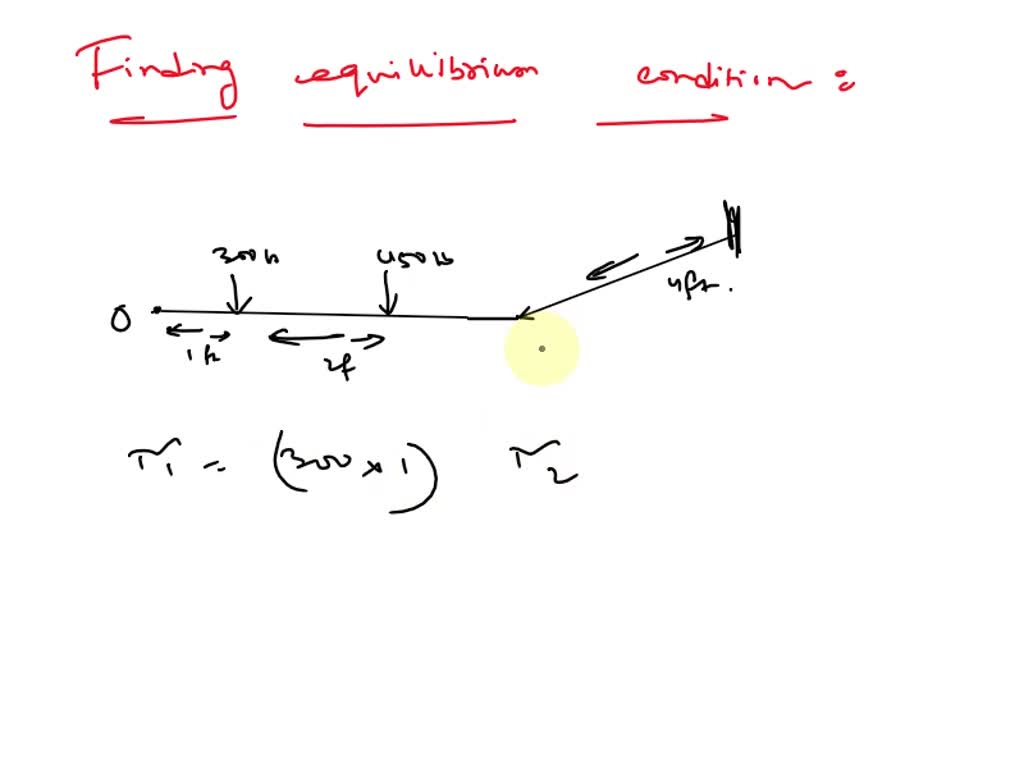 Finding equilibrium condition :
300lb 450lb
4ft.
O
1ft 2f
τ₁ = (300 × 1) τ₂